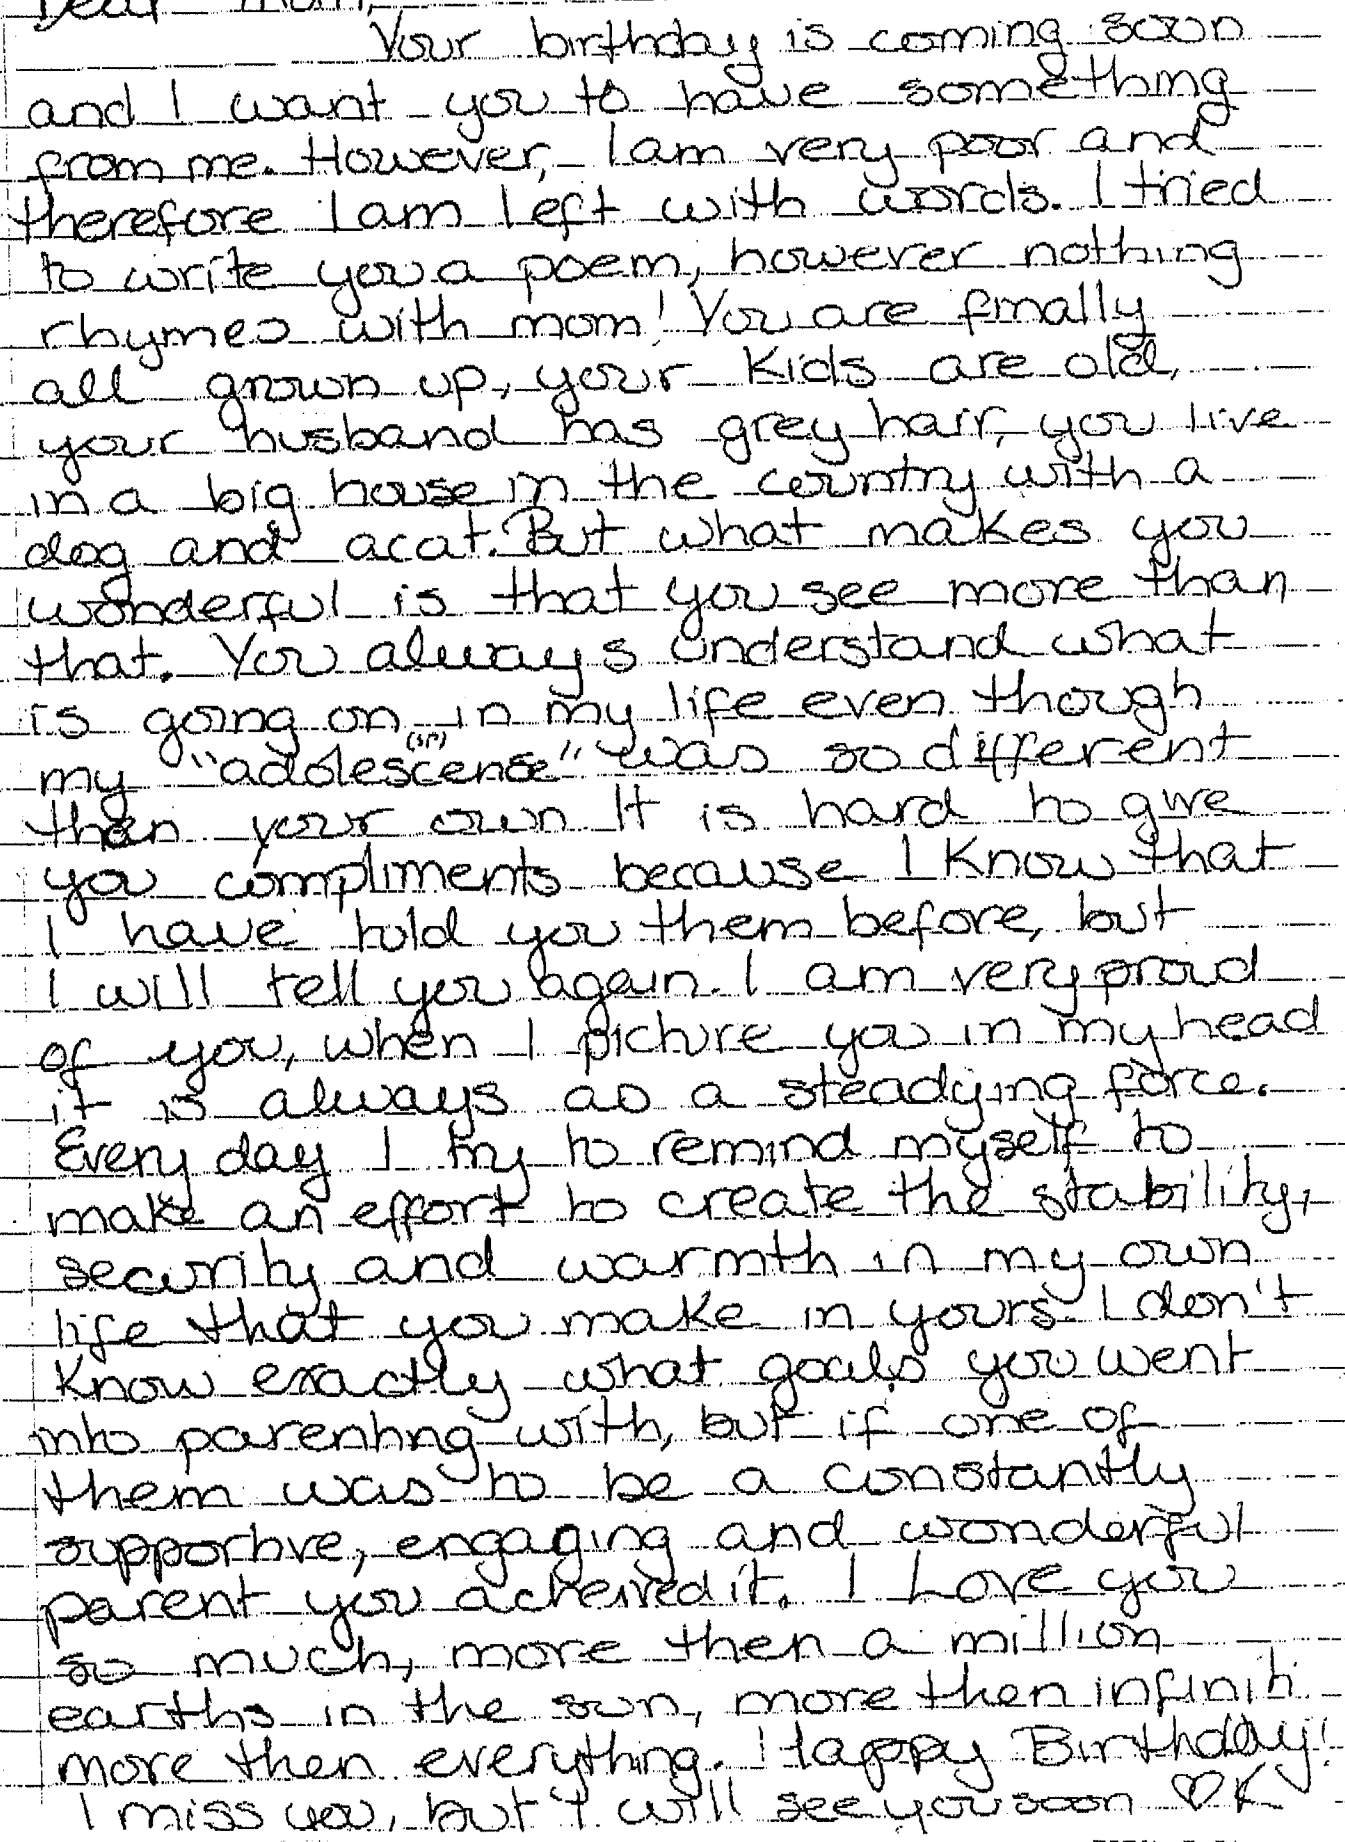 Dear Mom,
Your birthday is coming soon
and I want you to have something
from me. However, I am very poor and
therefore I am left with words. I tried
to write you a poem, however nothing
rhymes with mom! You are finally
all grown up, your kids are old,
your husband has grey hair, you live
in a big house in the country with a
dog and a cat. But what makes you
wonderful is that you see more than
that. You always understand what
is going on in my life even though
(sp)
my "adolescense" was so different
than your own It is hard to give
you compliments because I know that
I have told you them before, but
I will tell you again. I am very proud
of you, when I picture you in my head
it is always as a steadying force.
Every day I try to remind myself to
make an effort to create the stability,
security and warmth in my own
life that you make in yours. I don't
know exactly what goals you went
into parenting with, but if one of
them was to be a constantly
supportive, engaging and wonderful
parent you acheived it. I Love you
so much, more then a million
earths in the sun, more then infiniti
more then everything. Happy Birthday!
I miss you, but I will see you soon ♡K